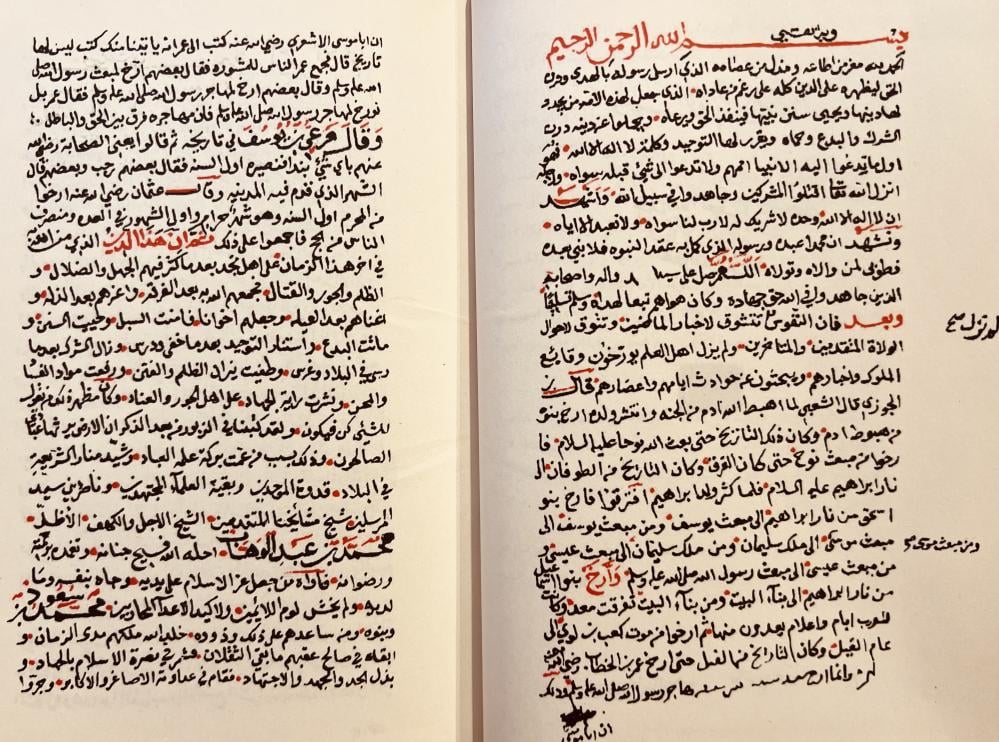 بسم الله الرحمن الرحيم وبه نستعين
الحمد لله معز من اطاعه ومذل من عصاه الذي ارسل رسوله بالهدى ودين
الحق ليظهره على الدين كله على رغم من عاداه الذي جعل لهذه الامة من يجدد
لها دينها ويحيي سنن نبيها فينفذ الحق ويرعاه
الشرك والبدع وحماه ويقرر لها التوحيد وكلمته لا اله الا الله فهو
اول ما تدعوا اليه الانبيا اممهم ولا تدعوا الى شئ قبله سواه
انزل الله تعالى اقتلوا المشركين وجاهد وافي سبيل الله واشهد
ان لا اله الا الله وحده لا شريك له لا رب لنا سواه ولا نعبد الا اياه
ونشهد ان محمدا عبده ورسوله الذي كمل به عقد النبوه فلا نبي بعده
فطوبى لمن والاه وتولاه اللهم صل على سيدنا محمد واله واصحابه
الذين جاهدوا في الله حق جهاده وكان هواهم تبعا لهداه وسلم تسليما
وبعد فان النفوس تتشوق لاخبار الماضين وتتوق لاحوال
الولاة المتقدمين والمتاخرين ولم يزل اهل العلم يورخون وقايع لم تزل صح
الملوك واخبارهم ويبحثون عن حوادث ايامهم واعصارهم قال ابن
الجوزي قال الشعبي لما اهبط الله ادم من الجنه وانتشر ولده ارخ بنوه
من هبوط ادم وكان ذلك التاريخ حتى بعث الله نوحا عليه السلام فا
رخوا من مبعث نوح حتى كان الغرق وكان التاريخ من الطوفان الى
نار ابراهيم عليه السلام فلما كثر ولد ابراهيم افترقوا فارخ بنو
اسحق من نار ابراهيم الى مبعث يوسف ومن مبعث يوسف الى
مبعث موسى الى ملك سليمان ومن ملك سليمان الى مبعث عيسى و ومن مبعث موسى صح
من مبعث عيسى الى مبعث رسول الله صلى الله عليه وسلم وارخ بنوا اسماعيل
من نار ابراهيم الى بناء البيت ومن بناء البيت تفرقت معد وكانت
للعرب ايام واعلام يعدون منها ثم ارخوا من موت كعب بن لوي الى
عام الفيل وكان التاريخ من الفيل حتى ارخ عمر بن الخطاب رضي الله عنه
وانما ارخ هاجر رسول الله صلى الله عليه وسلم وذلك
ان ابا موسى
ان ابا موسى الاشعري رضي الله عنه كتب الى عمر انه ياتينا منك كتب ليس لها
تاريخ قال فجمع عمر الناس للمشوره فقال بعضهم ارخ لمبعث رسول الله صلى
الله عليه وسلم وقال بعضهم ارخ لمهاجر رسول الله صلى الله عليه وسلم فقال عمر بل
نورخ لمهاجر رسول الله صلى الله عليه وسلم فان مهاجره فرق بين الحق والباطل
وقال مرعي بن يوسف في تاريخه ثم قالوا يعني الصحابة رضي الله
عنهم باي شئ نبدا فنصيره اول السنه فقال بعضهم رجب وبعضهم قال
الشهر الذي قدم فيه المدينه وقال عثمان رضي الله عنه ارخوا
من المحرم اول السنه وهو شهر حرام واول الشهور في العده ومنصرف
الناس من الحج فاجمعوا على ذلك ثم ان هذا الدين الذي من الله به
في اخر هذا الزمان على اهل نجد بعد ما كثر فيهم الجهل والضلال و
الظلم والجور والقتال فجمعهم الله به بعد الفرقه واعزهم بعد الذله و
اغناهم بعد العيله وجعلهم اخوانا فامنت السبل وحييت السنه و
ماتت البدع واستنار التوحيد بعد ما خفي ودرس وزال الشرك بعد ما
رسى في البلاد وغرس وطفيت نيران الظلم والفتن ورفعت مواد الفساد
والمحن ونشرت راية الجهاد على اهل الجور والعناد وكان مظهره لمن يقول
للشئ كن فيكون ولقد كتبنا في الزبور من بعد الذكر ان الارض يرثها عبادي
الصالحون وذلك بسبب من عمت بركة علمه العباد وشيد منار الشريعة
في البلاد قدوة الموحدين وبقية العلماء المجتهدين وناصر دين سيد
المرسلين شيخ مشائخنا المتقدمين الشيخ الاجل والكهف الاظل
محمد بن عبدالوهاب احله الله فسيح جنانه وتغمده برحمته
ورضوانه فاواه من جعل عز الاسلام على يديه وجاد بنفسه وما
لديه ولم يخش لوم اللائمين ولا كيد الاعداء المحاربين محمد بن سعود
وبنوه ومن ساعدهم على ذلك وذووه خلد الله ملكهم مدى الزمان و
ابقاه في صالح عقبهم ما بقي الثقلان فشمر في نصرة الاسلام بالجهاد و
بذل الجد والجهد والاجتهاد فقام في عداوته الاصاغر والاكابر وجروا